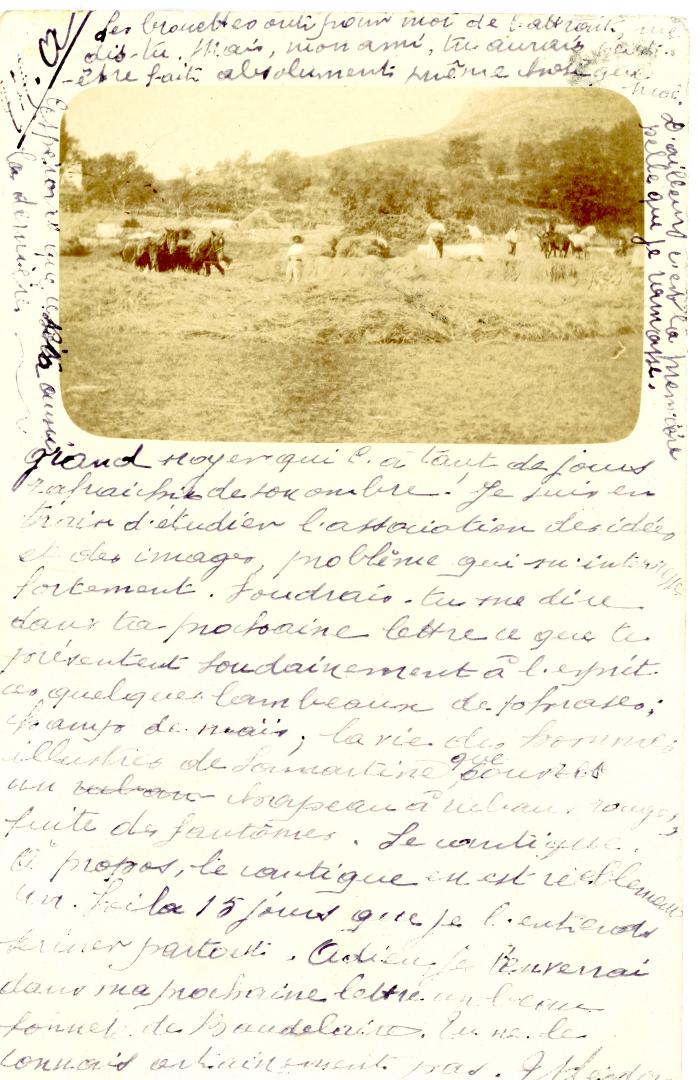 a/ Les brouettes ont pour moi de l'attrait, me
dis-tu. Mais, mon ami, tu aurais peut-
-être fait absolument même chose que
moi.
D'ailleurs c'est la première
pelle que je ramasse.
Espérons que cela
la dernière
grand noyer qui t'a tant de jours
rafraichi de son ombre! Je suis en
train d'étudier l'association des idées
et des images, problème qui m'intéresse
fortement. Voudrais-tu me dire
dans ta prochaine lettre ce que te
présentent soudainement à l'esprit
ces quelques lambeaux de phrases;
champ de maïs; la vie des hommes
illustres de Lamartine, que couvres
un ruban chapeau à rubans rouges;
fuite des fantômes. Le cantique.
A propos, le cantique en est réellement
un. Voilà 15 jours que je l'entends
seriner partout. Adieu, je t'enverrai
dans ma prochaine lettre un beau
sonnet de Baudelaire. Tu ne le
connais certainement pas.